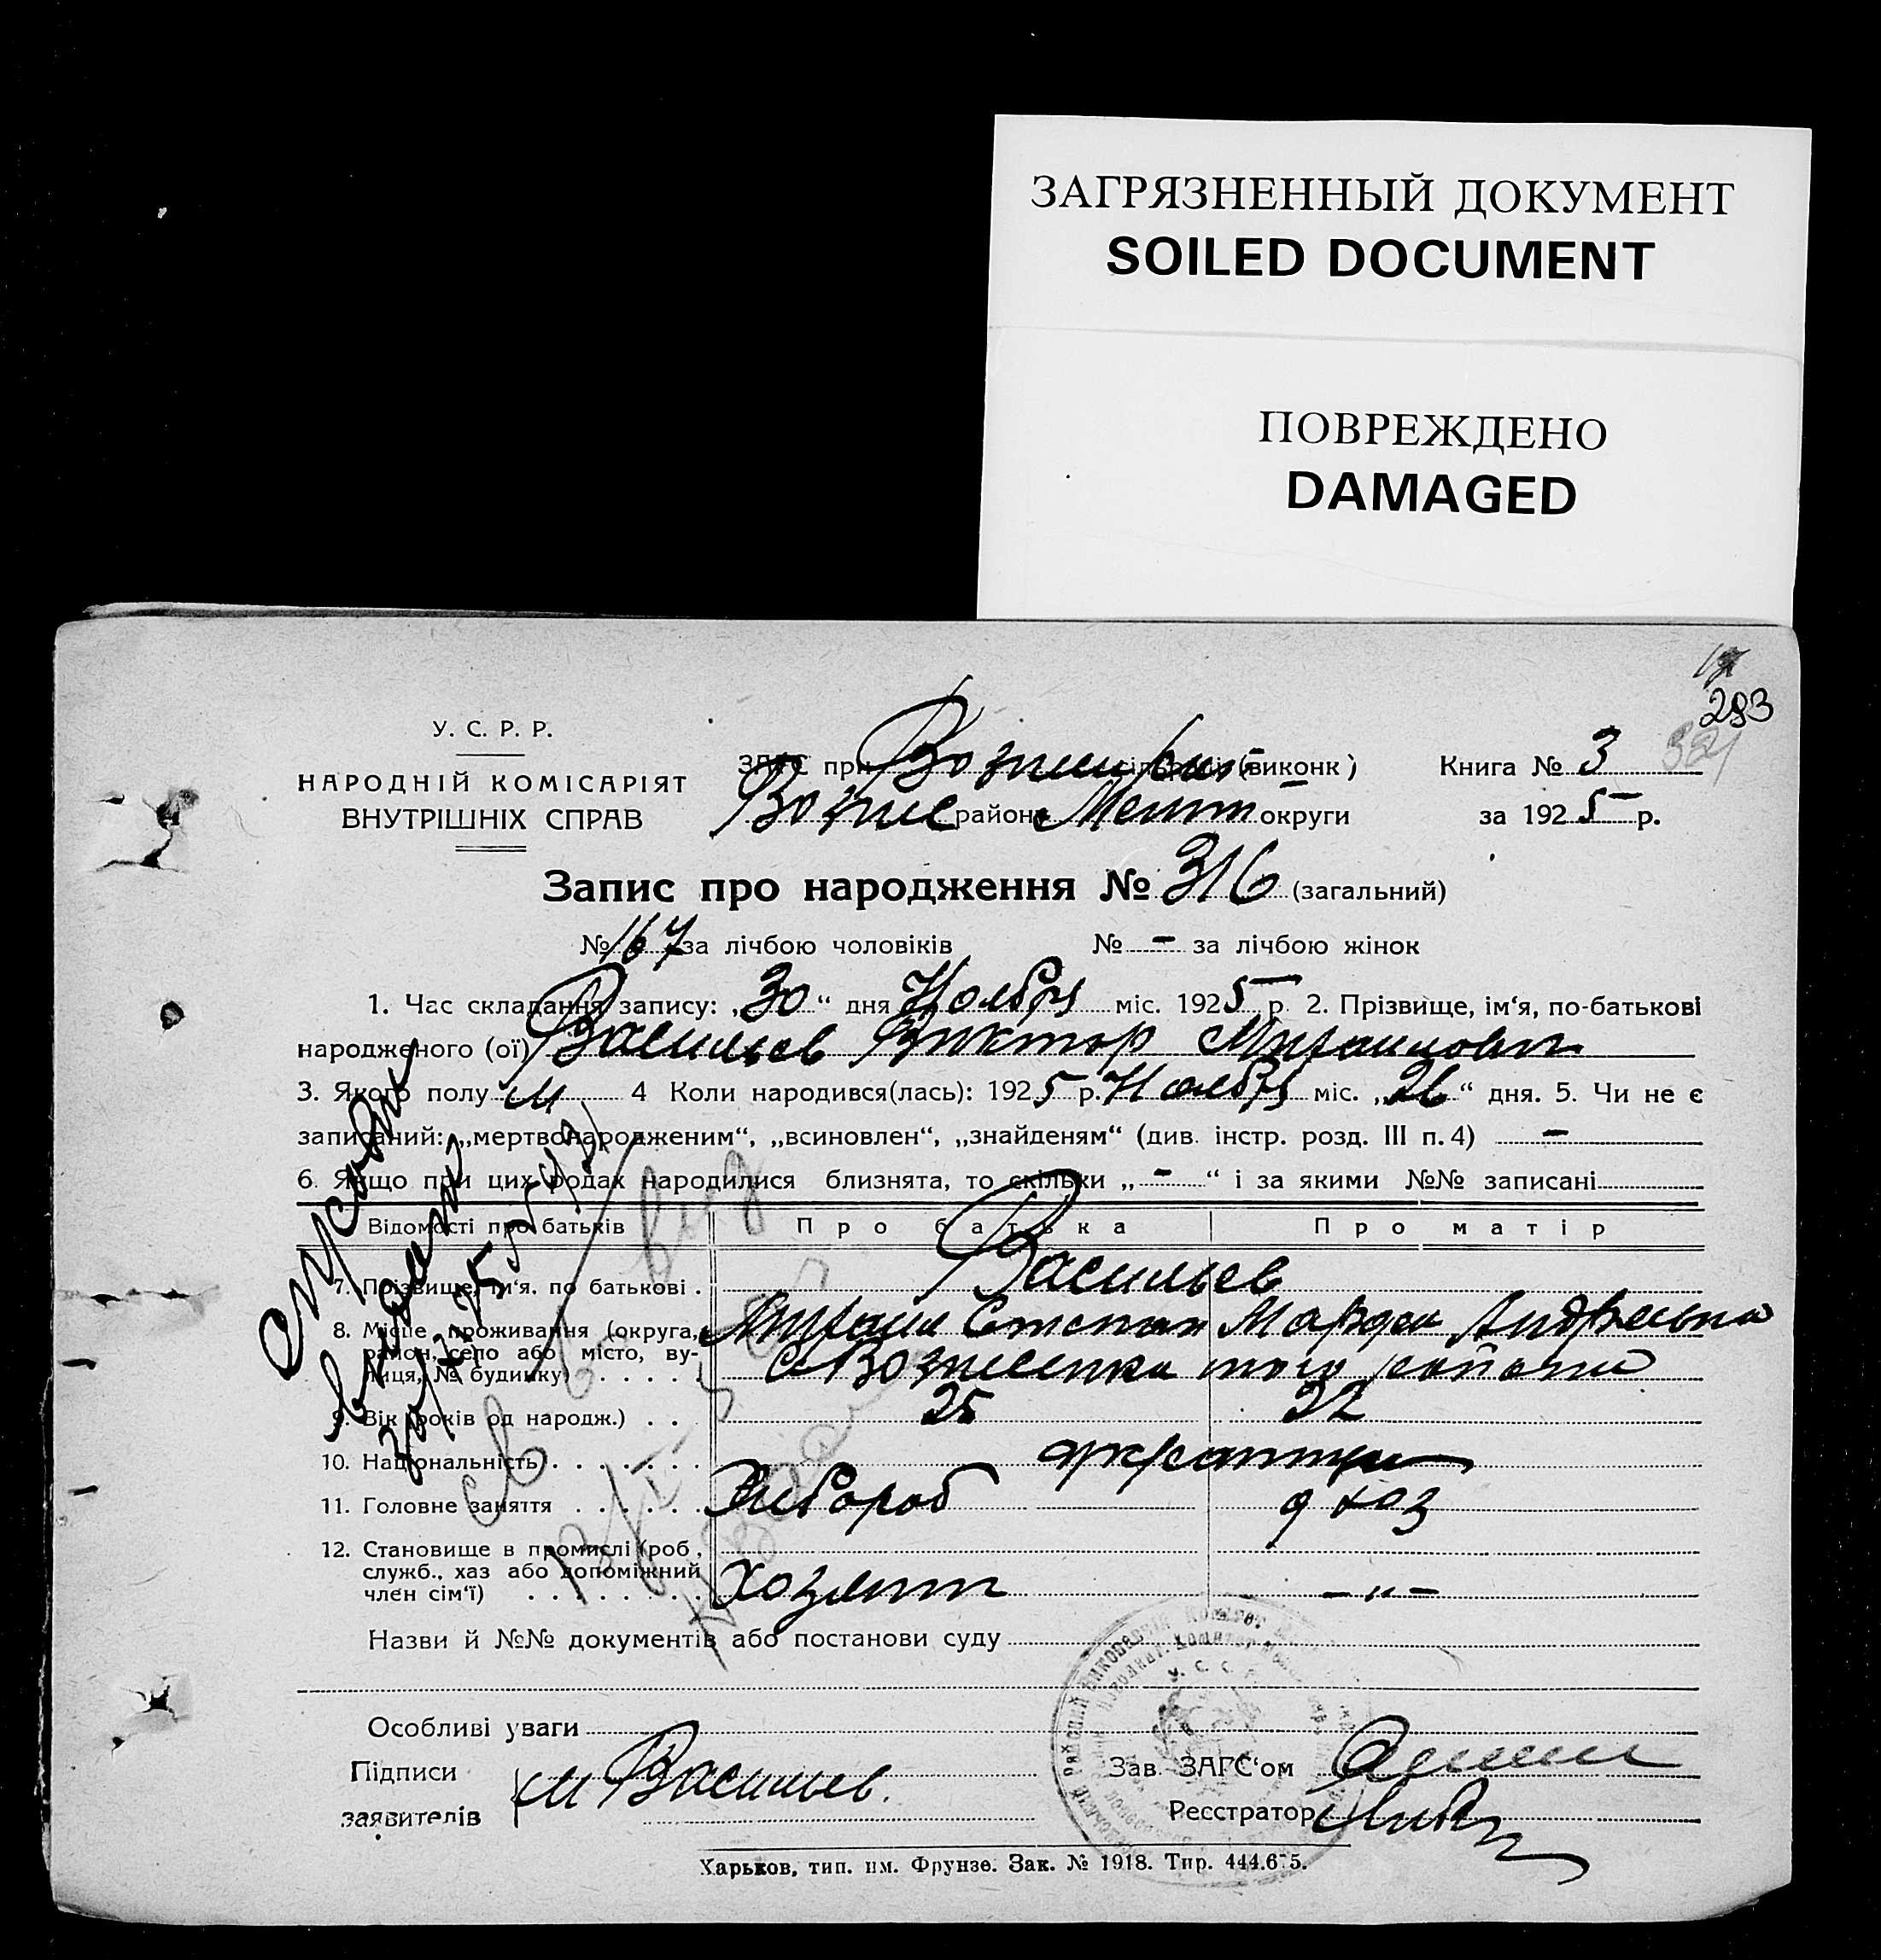 ЗАГРЯЗНЕННЫЙ ДОКУМЕНТ
SOILED DOCUMENT
ПОВРЕЖДЕНО
DAMAGED
293
У. С. Р. Р.
НАРОДНІЙ КОМІСАРІЯТ
ВНУТРІШНІХ СПРАВ
ЗАГС при (виконк)
Вознес район Меліт округи
Книга № 3
за 1925 р.
Запис про народження № 316 (загальний)
№ 167 за лічбою чоловіків № - за лічбою жінок
1. Час складання запису: „30“ дня Ноября міс. 1925 р 2. Прізвище, ім‘я, по-батькові
народженого (ої) Васильев Виктор Михаилович
3. Якого полу м 4 Коли народився(лась): 1925 р. Ноября міс. „26“ дня. 5. Чи не є
записаний: „мертвонародженим“, „всиновлен“, „знайденям“ (див. інстр. розд. III п. 4) -
6. Якщо при цих родах народилися близнята, то скільки „-“ і за якими №№ записані
Відомості про батьків Про батька Про матір
7. Прізвище, ім‘я. по батькові . Васильев
Михаил Степан Марфа Андреевна
8. Місце проживання (округа,
район, село або місто, ву-
лиця, № будинку) . . . . . с Вознесенка того района
9. Вік (років од народж.) . . 25 22
10. Національність . . . . . . .
11. Головне заняття . . . . . . Хлебороб д хоз
12. Становище в промислі (роб,
служб., хаз або допоміжний
член сім‘ї) . . . . . . . . Хозяин - „ -
Назви й №№ документів або постанови суду
Особливі уваги
Підписи
заявителів
М Васильев.
Зав ЗАГС‘ом
Реєстратор
Харьков, тип. им. Фрунзе. Зак. № 1918. Тир. 444.675.